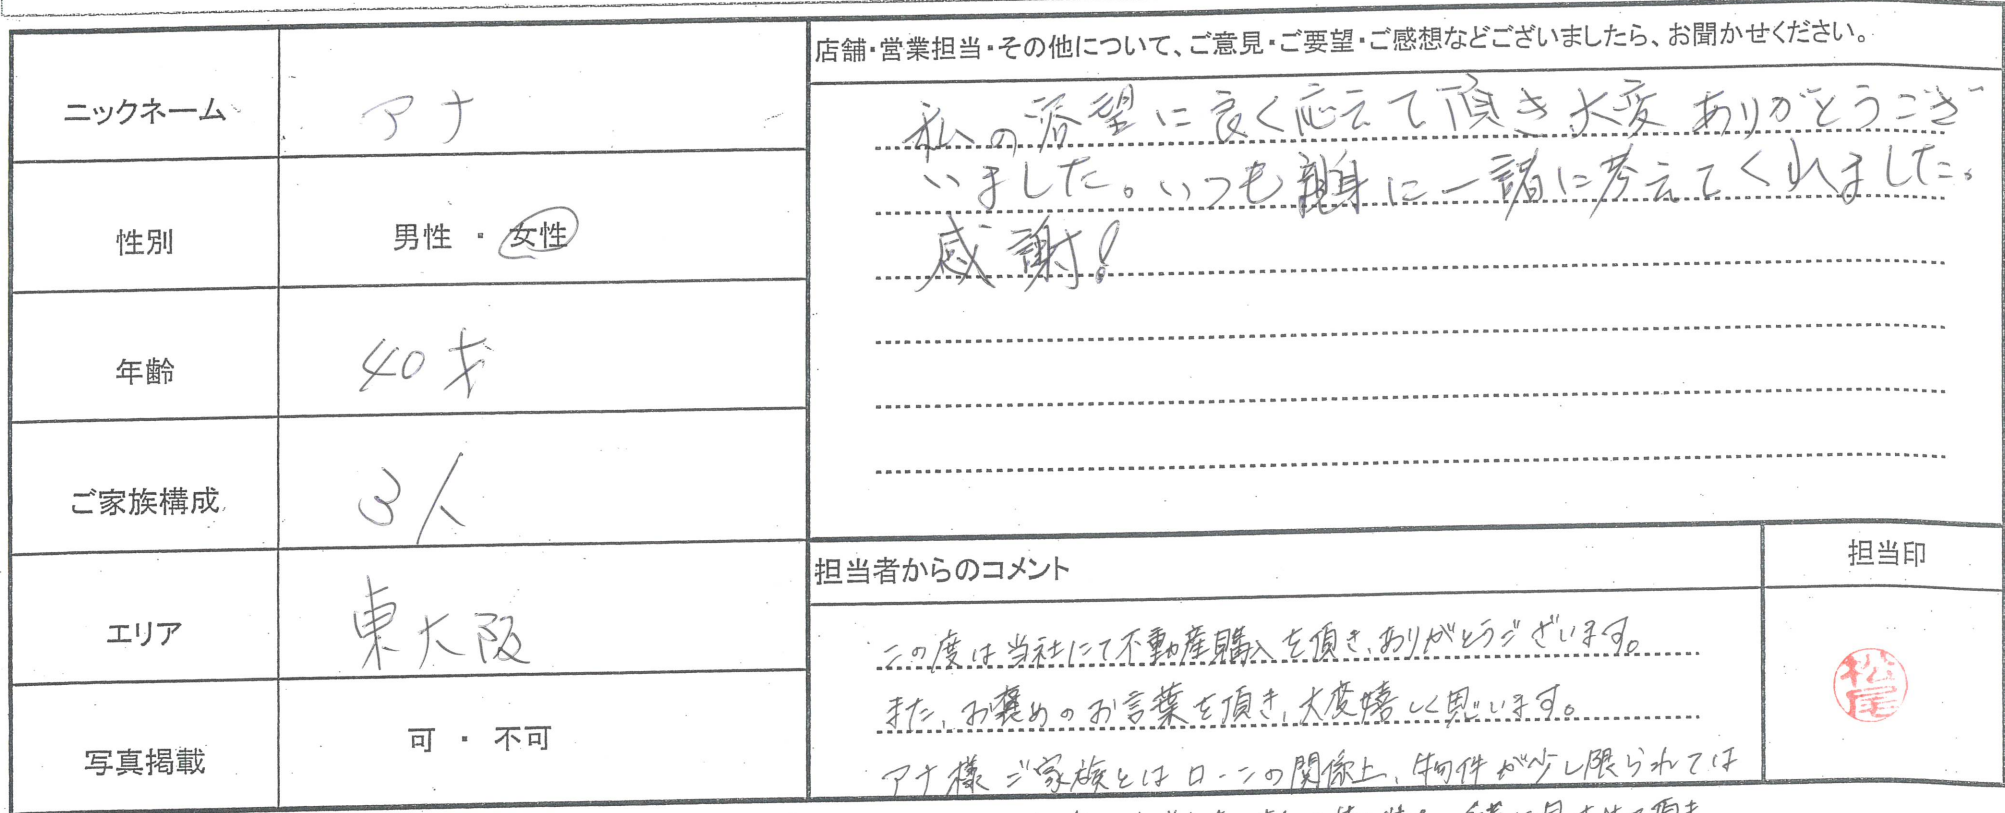 ニックネーム アナ
性別 男性 ・ 女性
年齢 40才
ご家族構成 3人
エリア 東大阪
写真掲載 可 ・ 不可
店舗・営業担当・その他について、ご意見・ご要望・ご感想などございましたら、お聞かせください。
私の希望に良く応えて頂き大変ありがとうござ
いました。いつも親身に一諸に考えてくれました。
感謝!
担当者からのコメント
この度は当社にて不動産購入を頂き、ありがとうございます。
また、お褒めのお言葉を頂き、大変嬉しく思います。
アナ様ご家族とはローンの関係上、物件が少し限られては
担当印
松尾